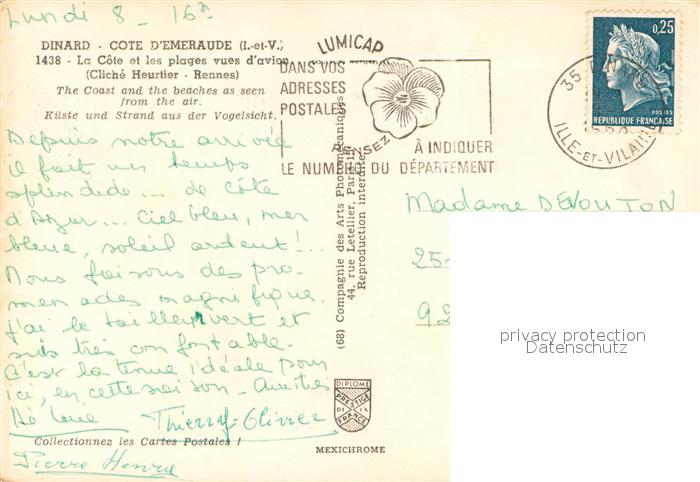 Lundi 8 - 16h
DINARD - COTE D'EMERAUDE (I.-et-V.)
1438 - La Côte et les plages vues d'avion
(Cliché Heurtier - Rennes)
The Coast and the beaches as seen
from the air.
Küste und Strand aus der Vogelsicht.
Depuis notre arrivée
il fait un temps
splendide... de côte
d'Azur... Ciel bleu, mer
bleue, soleil ardent!...
Nous faisons des pro-
menades magnifiques.
j'ai le tailleur vert et
suis très confortable.
C'est la tenue idéale pour
ici, en cette saison - Amitiés
Thierry-Olivier
Collectionnez les Cartes Postales !
Pierre Henry
LUMICAP
DANS VOS
ADRESSES
POSTALES
PENSEZ
À INDIQUER
LE NUMERO DU DÉPARTEMENT
(68) Compagnie des Arts Photomécaniques
44, rue Letellier, Paris-15e
Reproduction interdite
DIPLOME
PRESTIGE
DE LA
FRANCE
MEXICHROME
35
ILLE-ET-VILAINE
0,25
POSTES
REPUBLIQUE FRANÇAISE
Madame DEVOUTON
25-
92
privacy protection
Datenschutz